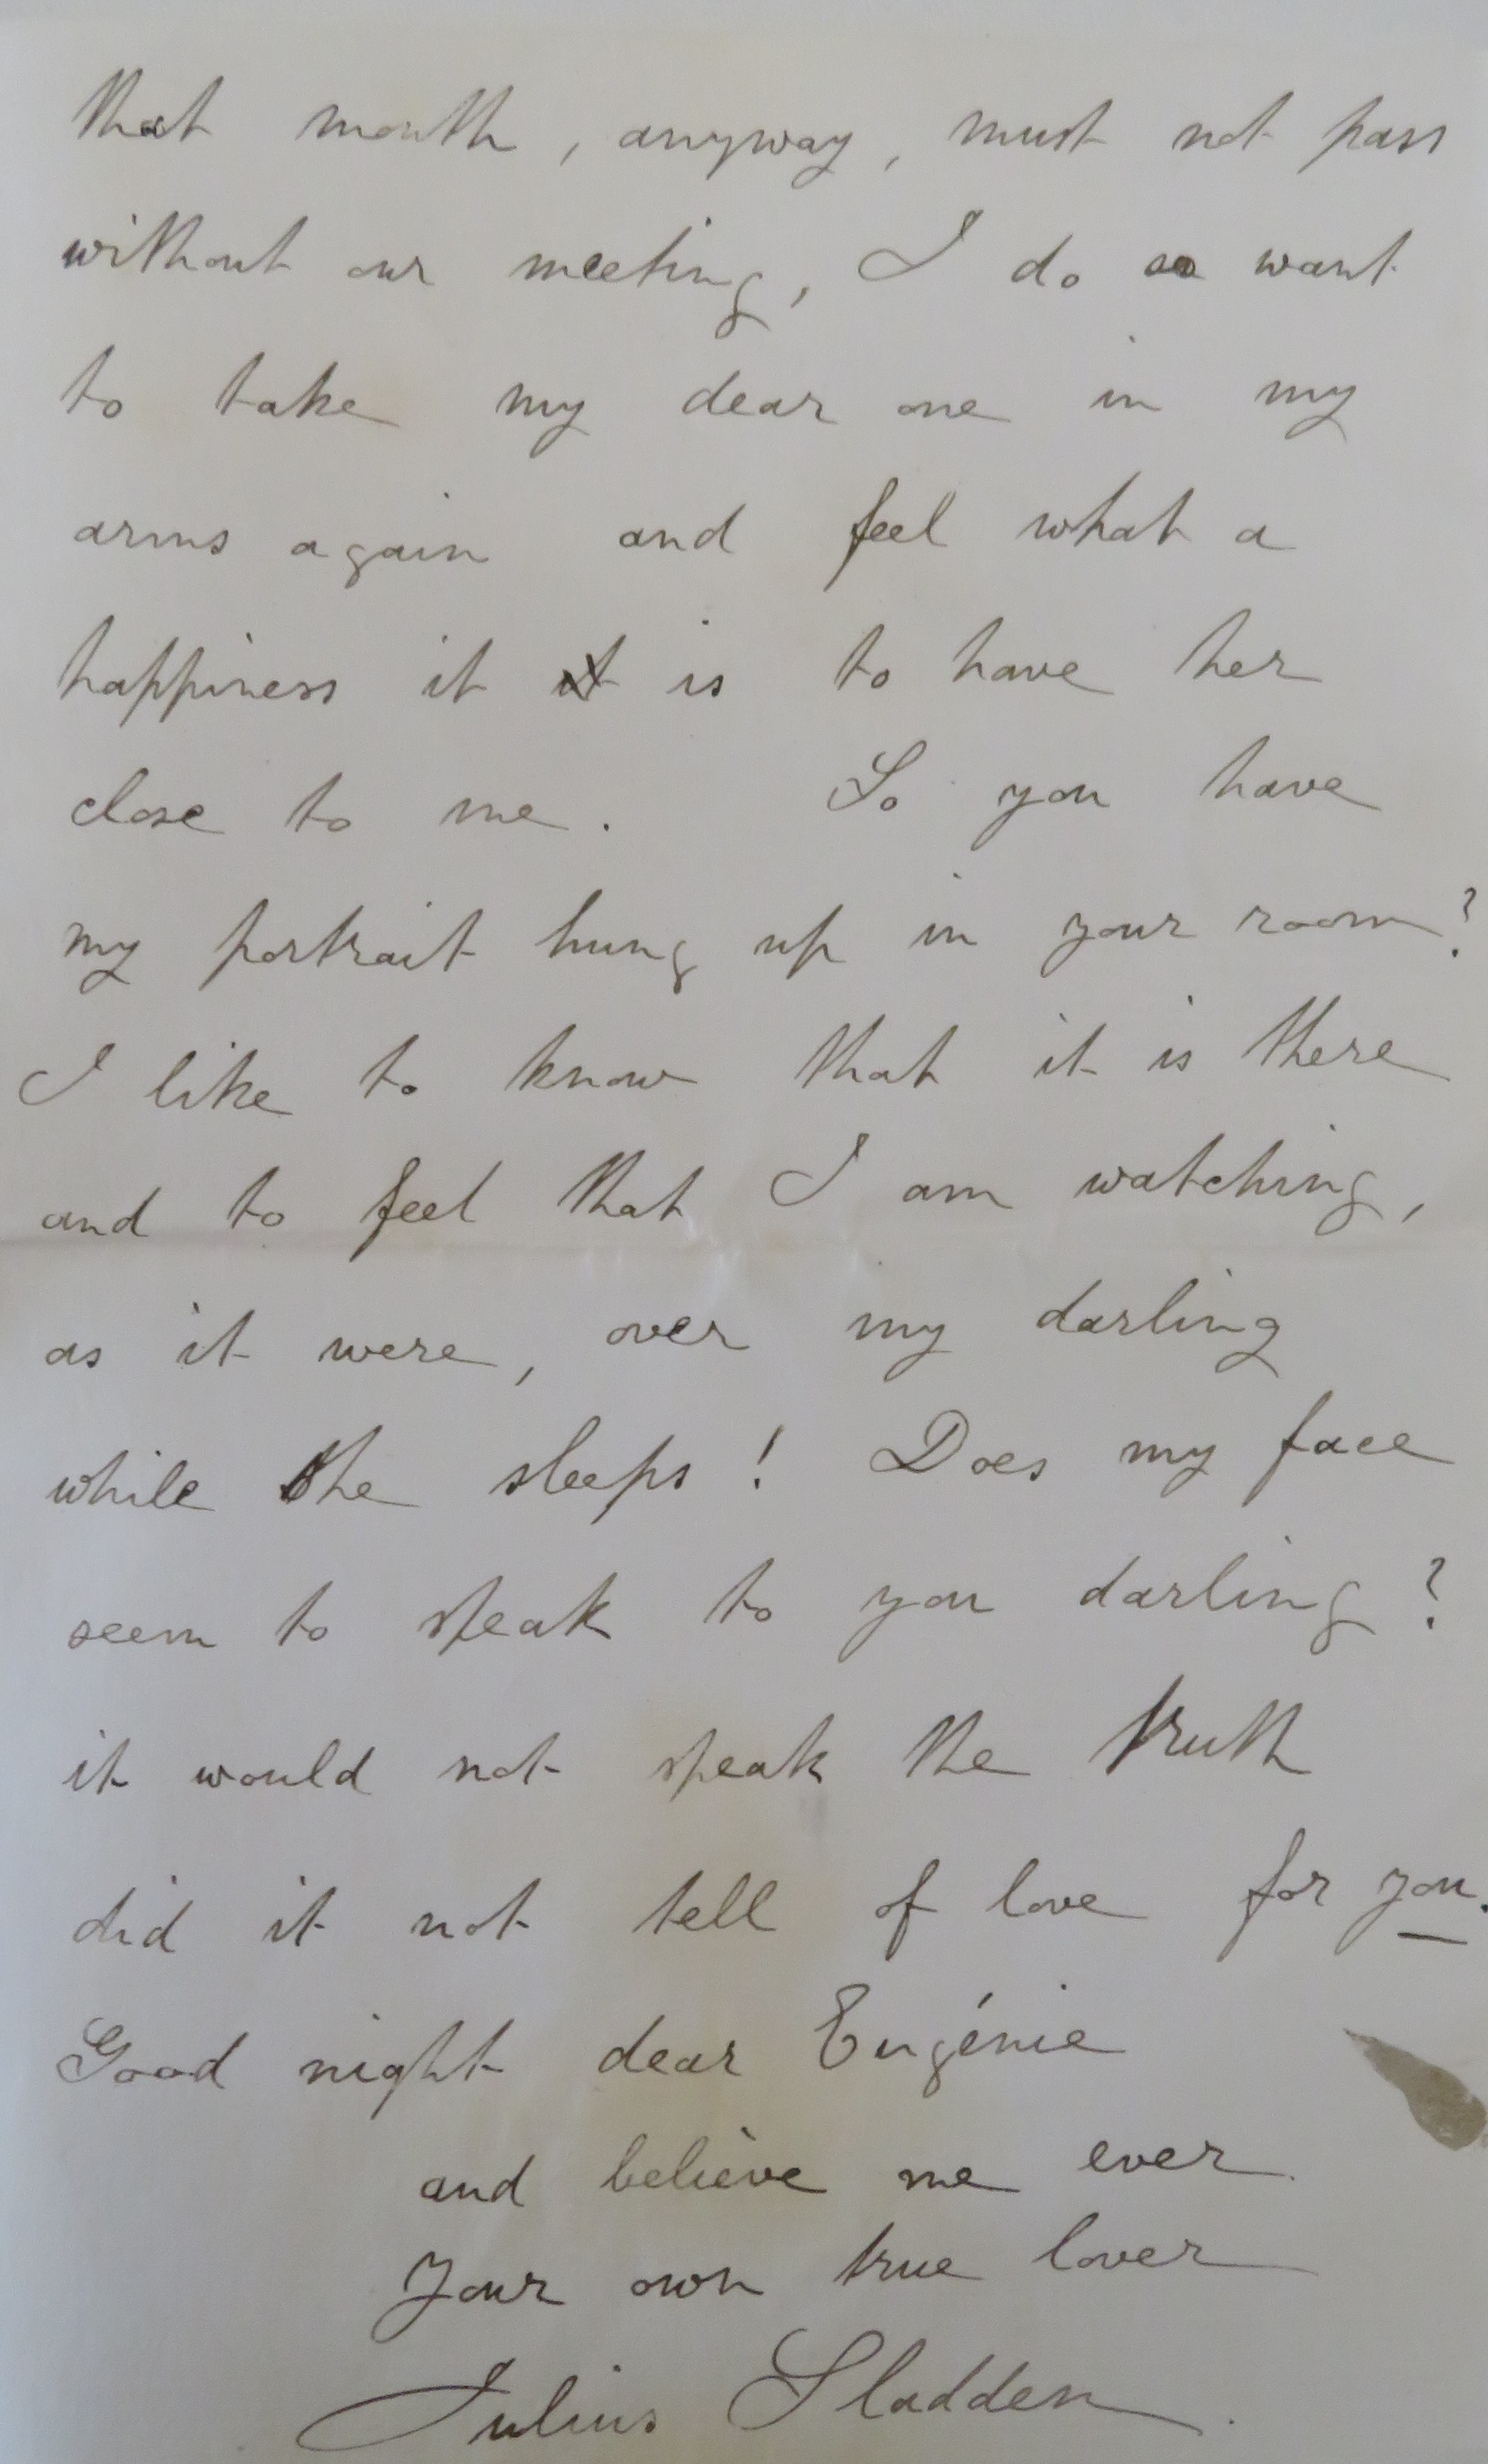 that month, anyway, must not pass
without our meeting, I do so want
to take my dear one in my
arms again and feel what a
happiness it it is to have her
close to me. So you have
my portrait hung up in your room?
I like to know that it is there
and to feel that I am watching,
as it were, over my darling
while she sleeps! Does my face
seem to speak to you darling?
it would not speak the truth
did it not tell of love for you.
Good night dear Eugénie
and believe me ever
Your own true lover
Julius Sladden.